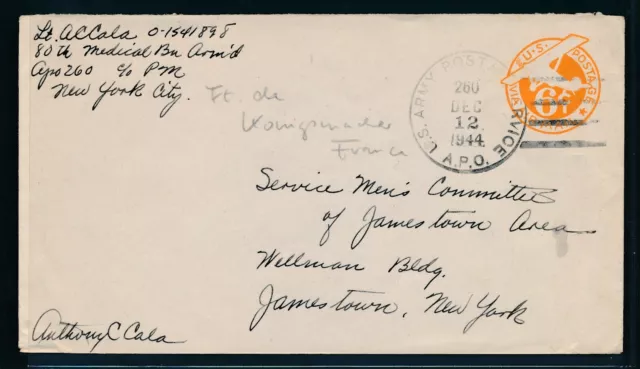 Lt. A C Cala O-1541898
80th Medical Bn Arm'd
Apo 260 c/o PM
New York City.
Ft. de
Konigsmacker
France
U.S. ARMY POSTAL SERVICE
260
DEC
12
1944
A.P.O.
U.S. POSTAGE
VIA AIR MAIL
6¢
Service Men's Committee
of Jamestown Area
Wellman Bldg.
Jamestown, New York
Anthony C Cala